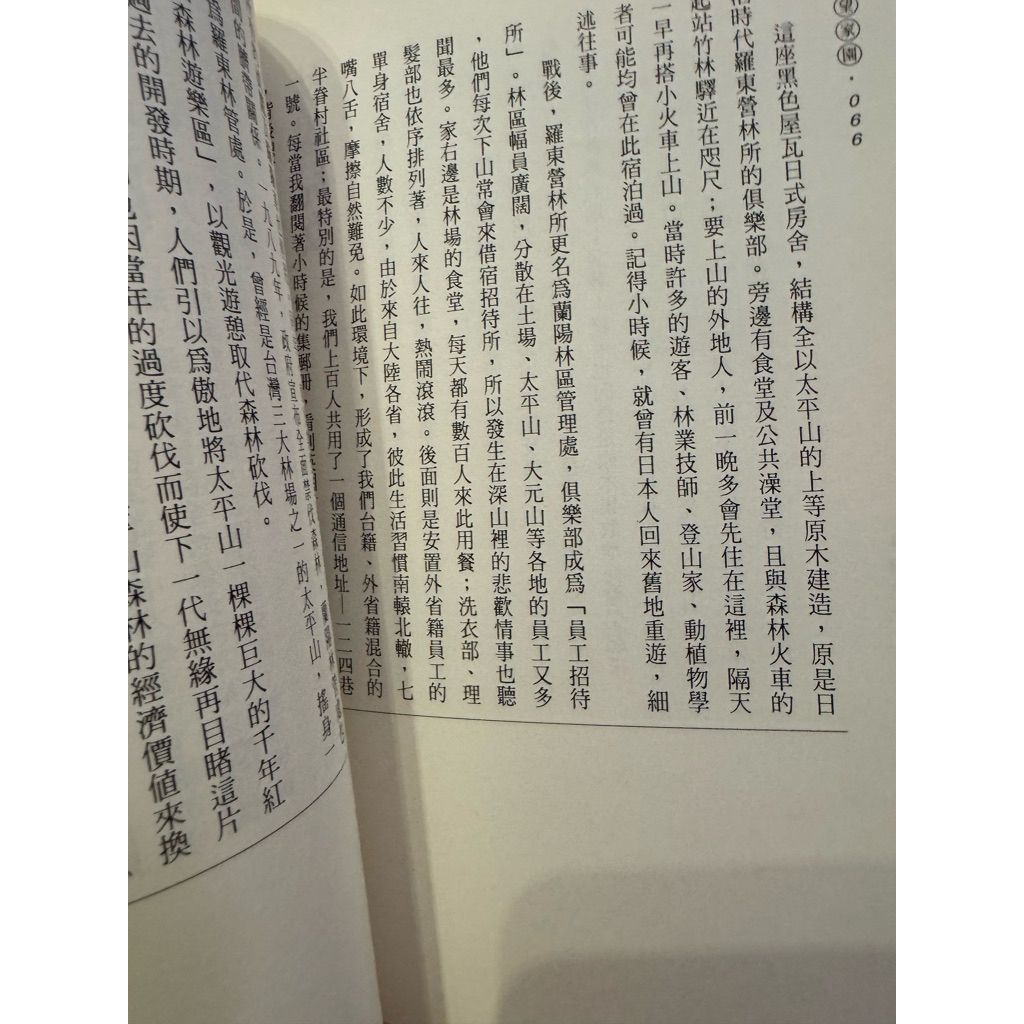 望家園．066
這座黑色屋瓦日式房舍，結構全以太平山的上等原木建造，原是日
治時代羅東營林所的俱樂部。旁邊有食堂及公共澡堂，且與森林火車的
起站竹林驛近在咫尺；要上山的外地人，前一晚多會先住在這裡，隔天
一早再搭小火車上山。當時許多的遊客、林業技師、登山家、動植物學
者可能均曾在此宿泊過。記得小時候，就曾有日本人回來舊地重遊，細
述往事。
戰後，羅東營林所更名爲蘭陽林區管理處，俱樂部成爲「員工招待
所」。林區幅員廣闊，分散在土場、太平山、大元山等各地的員工又多
，他們每次下山常會來借宿招待所，所以發生在深山裡的悲歡情事也聽
聞最多。家右邊是林場的食堂，每天都有數百人來此用餐；洗衣部、理
髮部也依序排列著，人來人往，熱鬧滾滾。後面則是安置外省籍員工的
單身宿舍，人數不少，由於來自大陸各省，彼此生活習慣南轅北轍，七
嘴八舌，摩擦自然難免。如此環境下，形成了我們台籍、外省籍混合的
半眷村社區；最特別的是，我們上百人共用了一個通信地址—一二四巷
一號。每當我翻閱著小時候的集郵冊，看到
一九八九年，政府宣布全面禁伐森林，
爲羅東林管處。於是，曾經是台灣三大林場之一的太平山，搖身一
森林遊樂區」，以觀光遊憩取代森林砍伐。
過去的開發時期，人們引以爲傲地將太平山一棵棵巨大的千年紅
也因當年的過度砍伐而使下一代無緣再目睹這片
山森林的經濟價值來換